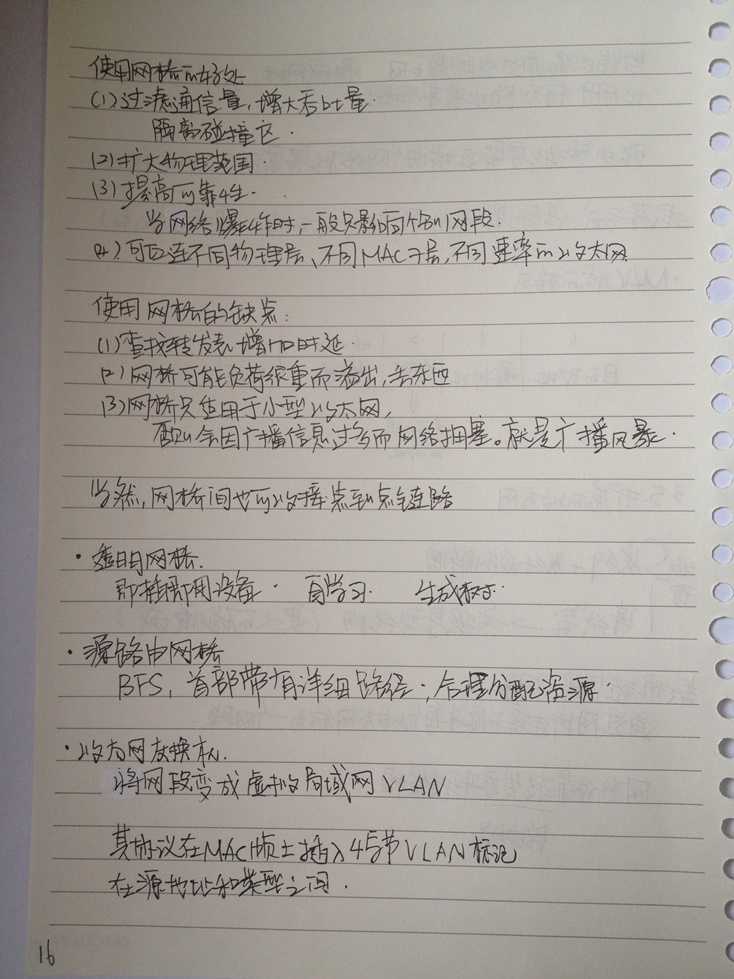 使用网桥的好处
(1)过滤通信量,增大吞吐量.
隔离碰撞区.
(2)扩大物理范围.
(3)提高可靠性.
当网络爆炸时,一般只影响个别网段.
(4)可以连不同物理层、不同MAC子层,不同速率的以太网
使用网桥的缺点:
(1)查找转发表增加时延.
(2)网桥可能负荷很重而溢出,丢东西
(3)网桥只适用于小型以太网,
否则会因广播信息过多而网络拥塞。就是广播风暴.
当然,网桥间也可以接点到点链路
·透明网桥.
即插即用设备. 自学习. 生成树.
·源路由网桥
BFS,首部带有详细路径,合理分配资源.
·以太网交换机.
将网段变成虚拟局域网VLAN
其协议在MAC帧上插入4字节VLAN标记
在源地址和类型之间.
16